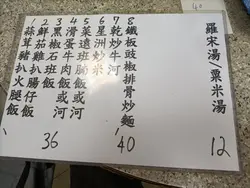 羅宋湯/粟米湯
12
1 蒜茸豬扒火腿飯
2 鮮茄雞扒腸仔飯
3 黑椒石班飯
4 滑蛋牛肉飯或河
5 菜遠班腩飯或河
6 星洲炒米
36
7 乾炒牛河
8 鐵板豉椒排骨炒麵
40
40